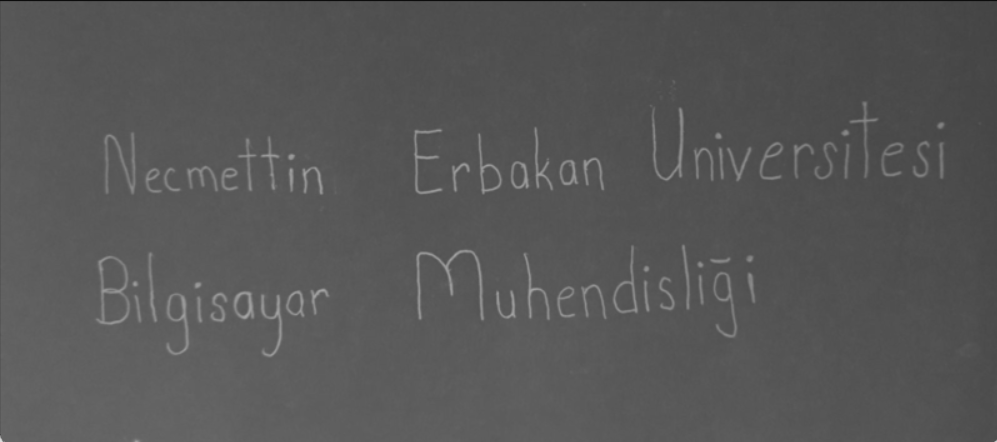 Necmettin Erbakan Üniversitesi
Bilgisayar Muhendisliği